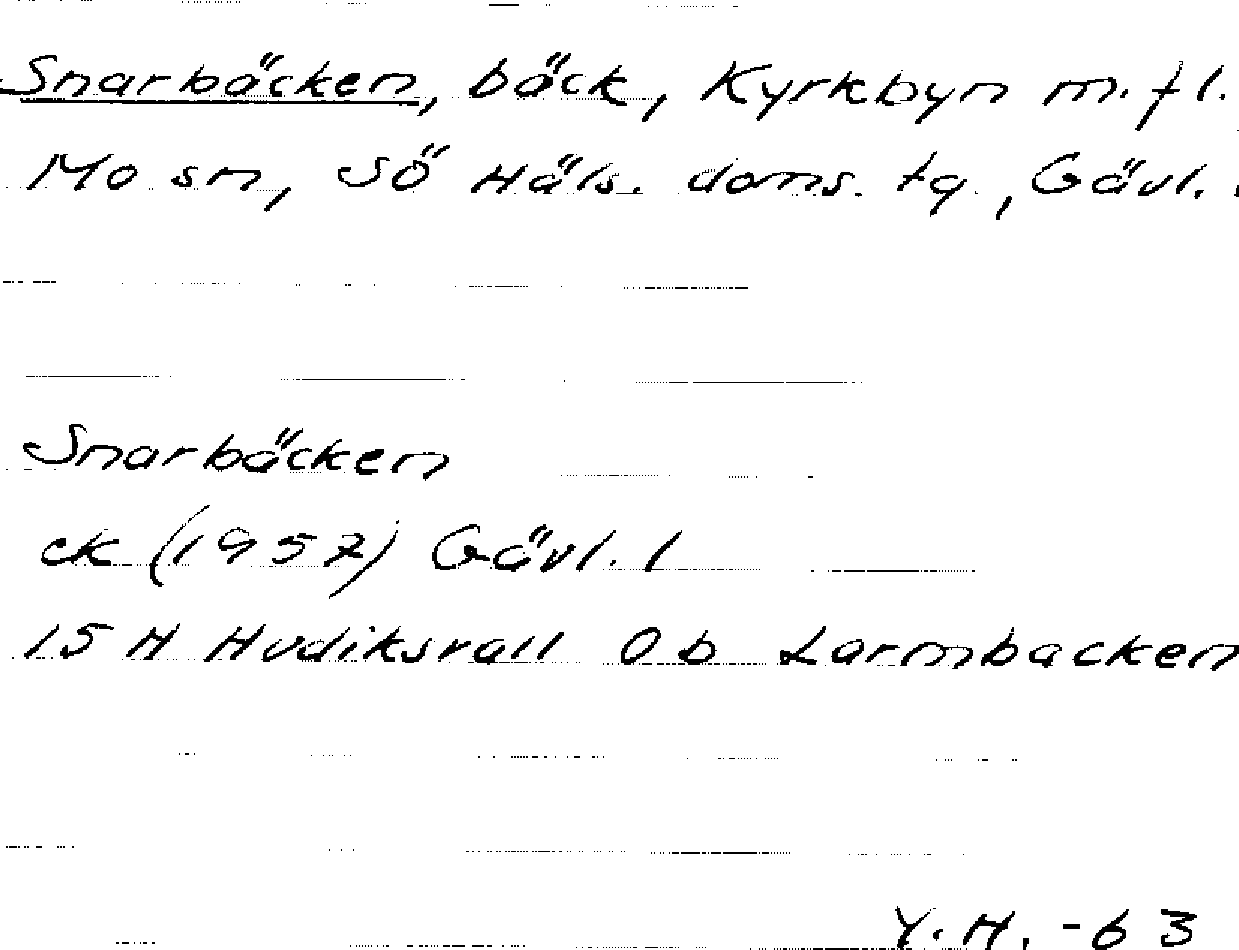 Snarbäcken, bäck, Kyrkbyn m.fl.
Mo sn, SÖ Häls. doms. tg., Gävl.
Snarbäcken
ek (1957) Gävl. l
15 H Hudiksvall 0 b Larmbacken
Y.H. -63